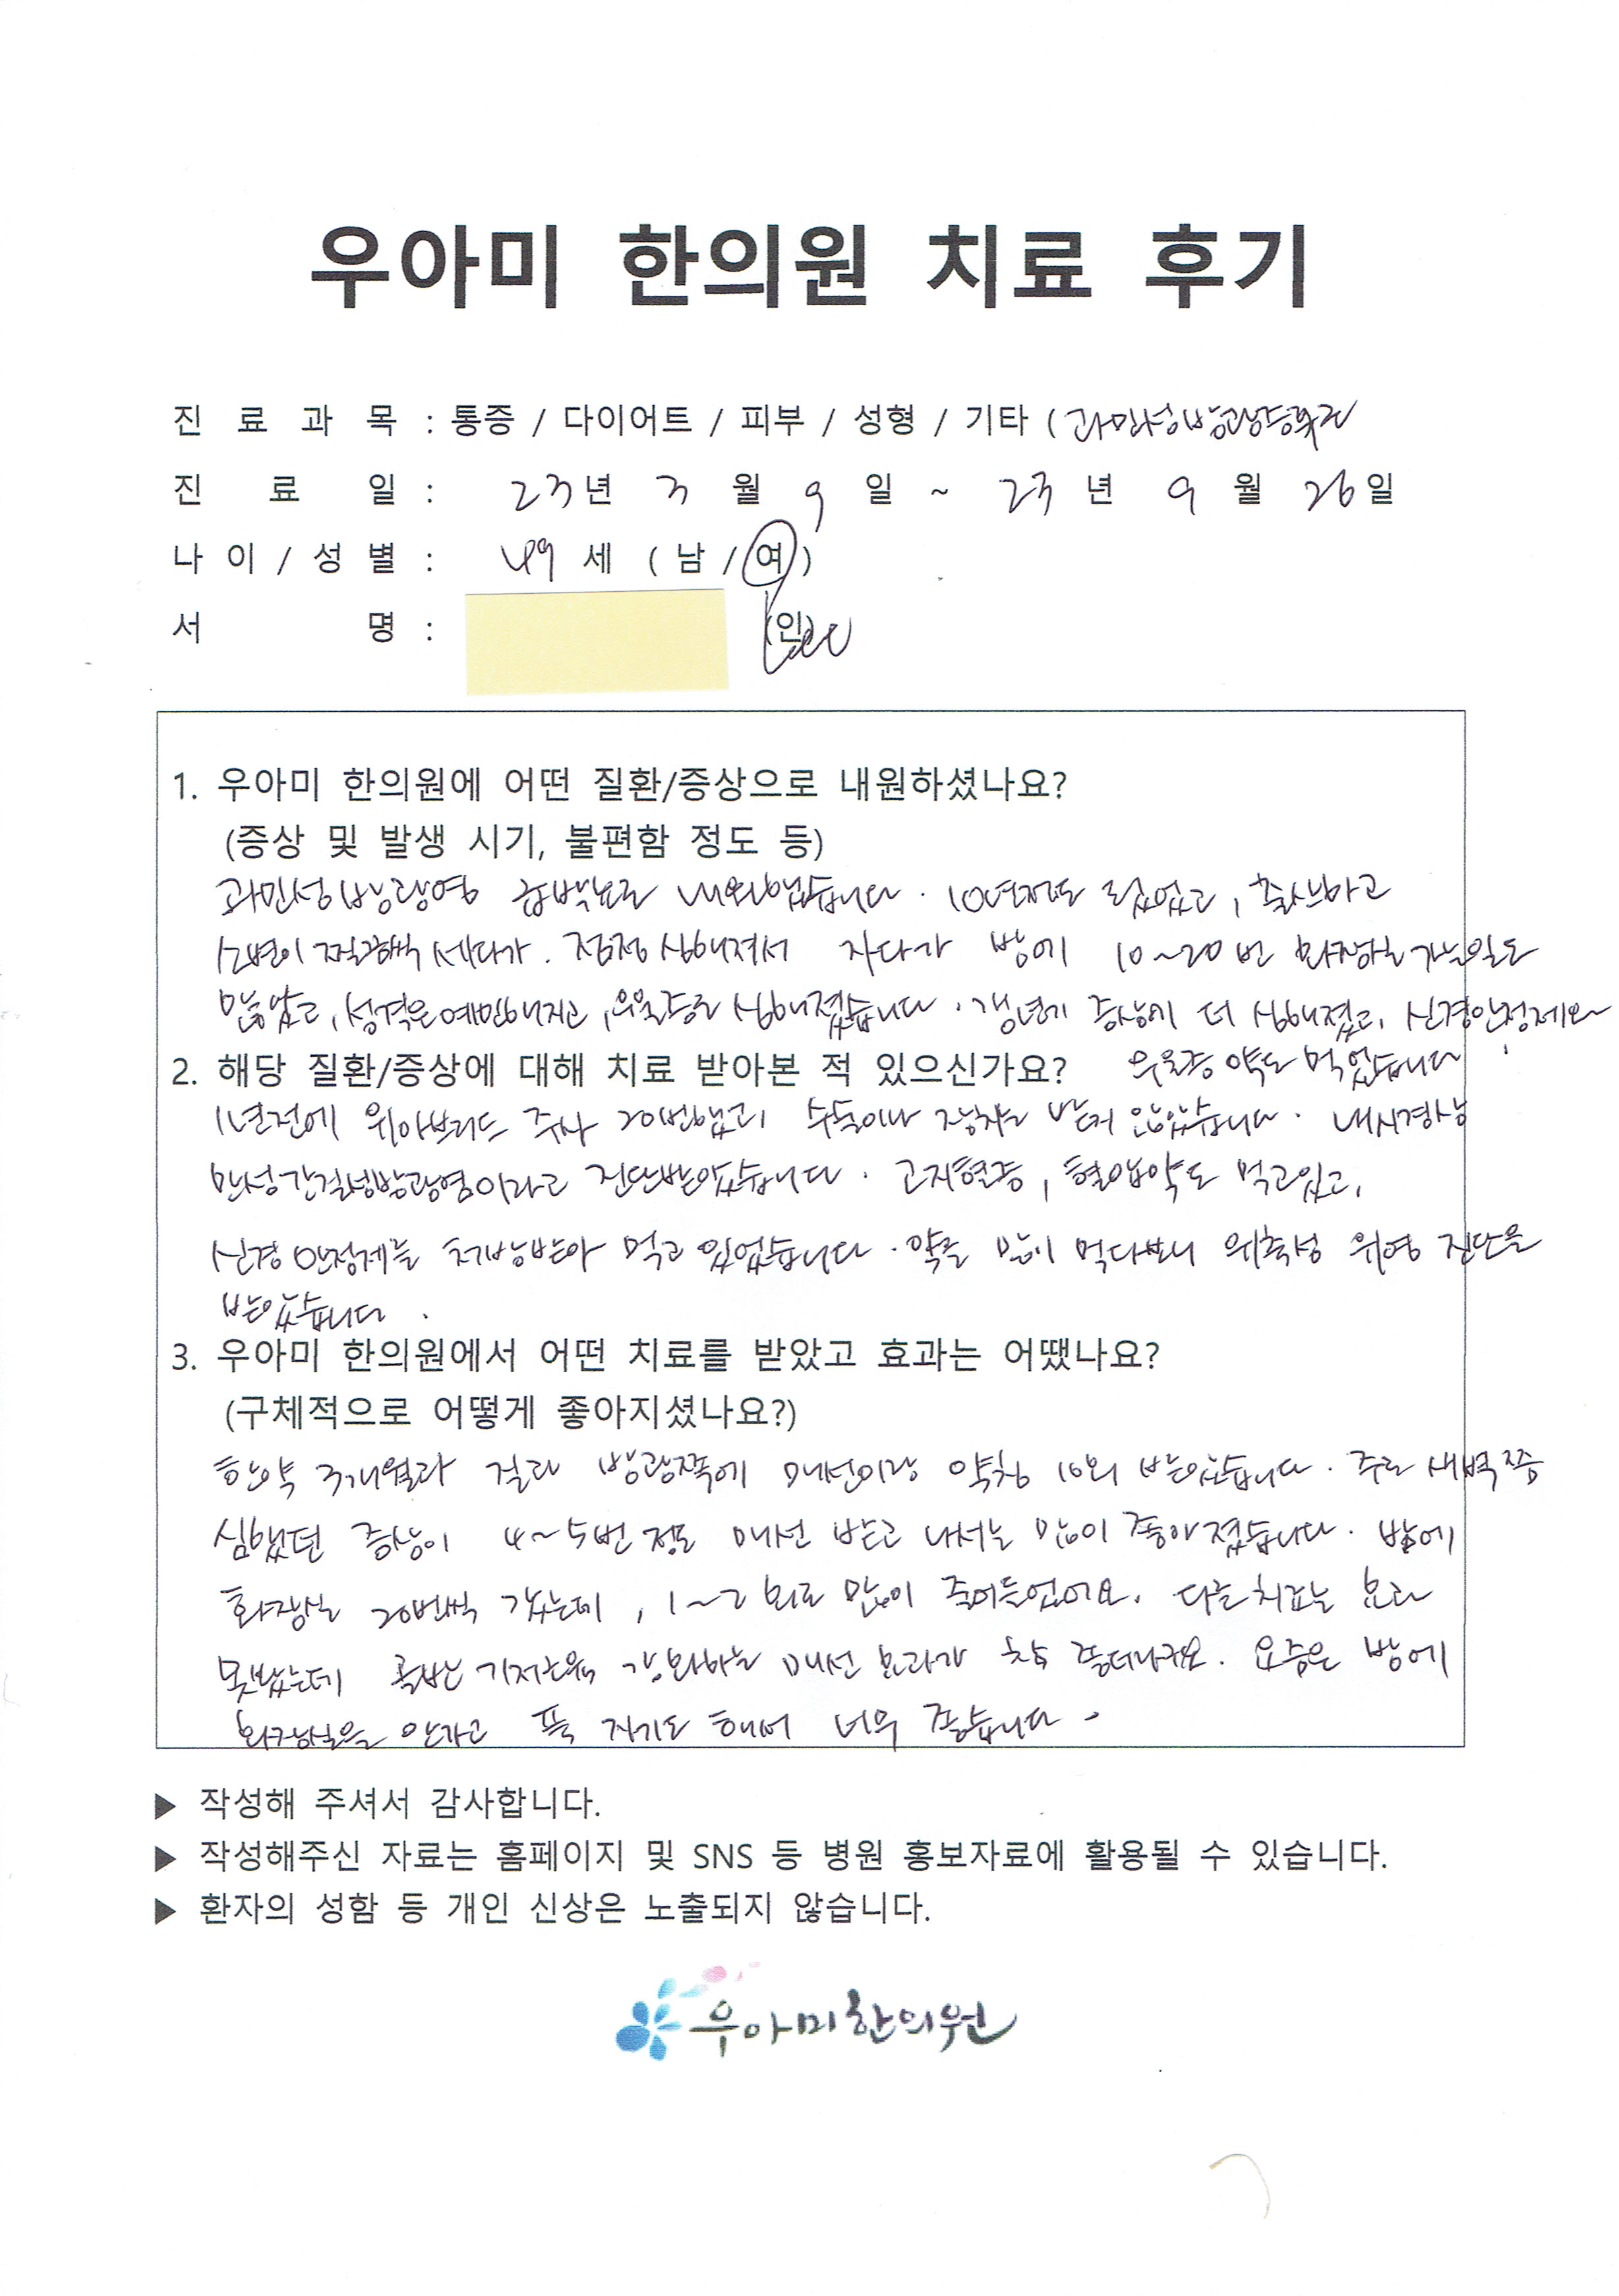 우아미 한의원 치료 후기
진 료 과 목 : 통증 / 다이어트 / 피부 / 성형 / 기타 ( 과민성방광증후군
진 료 일 : 23년 3 월 9 일 ~ 23 년 9 월 26일
나 이 / 성 별 : 49 세 ( 남 / 여 )
서 명 : (인) Lee
1. 우아미 한의원에 어떤 질환/증상으로 내원하셨나요?
(증상 및 발생 시기, 불편함 정도 등)
과민성방광염 급박뇨로 내원했습니다. 10년정도 되었고, 출산하고
소변이 찔끔씩 세다가. 점점 심해져서 자다가 밤에 10~20번 화장실 가는일도
많았고, 성격은 예민해지고, 우울증도 심해졌습니다. 갱년기 증상이 더 심해졌고, 신경안정제와
2. 해당 질환/증상에 대해 치료 받아본 적 있으신가요? 우울증 약도 먹었습니다
1년전에 위아브리드 주사 20번했고, 수술이나 장치는 받지 않았습니다. 내시경상
만성간질성방광염이라고 진단받았습니다. 고지혈증, 혈압약도 먹고있고,
신경안정제를 처방받아 먹고 있었습니다. 약을 많이 먹다보니 위축성 위염 진단을
받았습니다.
3. 우아미 한의원에서 어떤 치료를 받았고 효과는 어땠나요?
(구체적으로 어떻게 좋아지셨나요?)
한약 3개월과 질과 방광쪽에 매선이랑 약침 10회 받았습니다. 주로 새벽쯤
심했던 증상이 4~5번 정도 매선 받고 나서는 많이 좋아졌습니다. 밤에
화장실 20번씩 갔는데, 1~2회로 많이 줄어들었어요. 다른치료는 효과
못봤는데 골반 기저근육 강화하는 매선 효과가 참 좋더라구요. 요즘은 밤에
화장실을 안가고 푹 자기도 해서 너무 좋습니다.
▶ 작성해 주셔서 감사합니다.
▶ 작성해주신 자료는 홈페이지 및 SNS 등 병원 홍보자료에 활용될 수 있습니다.
▶ 환자의 성함 등 개인 신상은 노출되지 않습니다.
우아미한의원